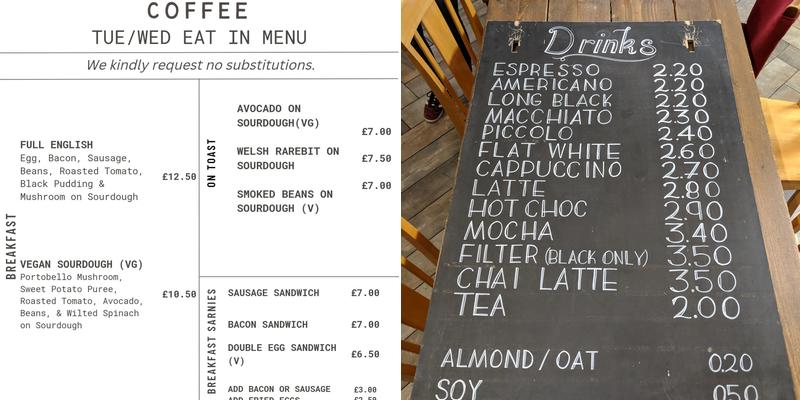 COFFEE
TUE/WED EAT IN MENU
We kindly request no substitutions.
BREAKFAST
FULL ENGLISH
Egg, Bacon, Sausage,
Beans, Roasted Tomato,
Black Pudding &
Mushroom on Sourdough
£12.50
VEGAN SOURDOUGH (VG)
Portobello Mushroom,
Sweet Potato Puree,
Roasted Tomato, Avocado,
Beans, & Wilted Spinach
on Sourdough
£10.50
ON TOAST
AVOCADO ON
SOURDOUGH(VG)
£7.00
WELSH RAREBIT ON
SOURDOUGH
£7.50
SMOKED BEANS ON
SOURDOUGH (V)
£7.00
BREAKFAST SARNIES
SAUSAGE SANDWICH £7.00
BACON SANDWICH £7.00
DOUBLE EGG SANDWICH
(V)
£6.50
ADD BACON OR SAUSAGE £3.00
ADD FRIED EGGS
Drinks
ESPRESSO 2.20
AMERICANO 2.20
LONG BLACK 2.20
MACCHIATO 2.30
PICCOLO 2.40
FLAT WHITE 2.60
CAPPUCCINO 2.70
LATTE 2.80
HOT CHOC 2.90
MOCHA 3.40
FILTER (BLACK ONLY) 3.50
CHAI LATTE 3.50
TEA 2.00
ALMOND/OAT 0.20
SOY 0.50